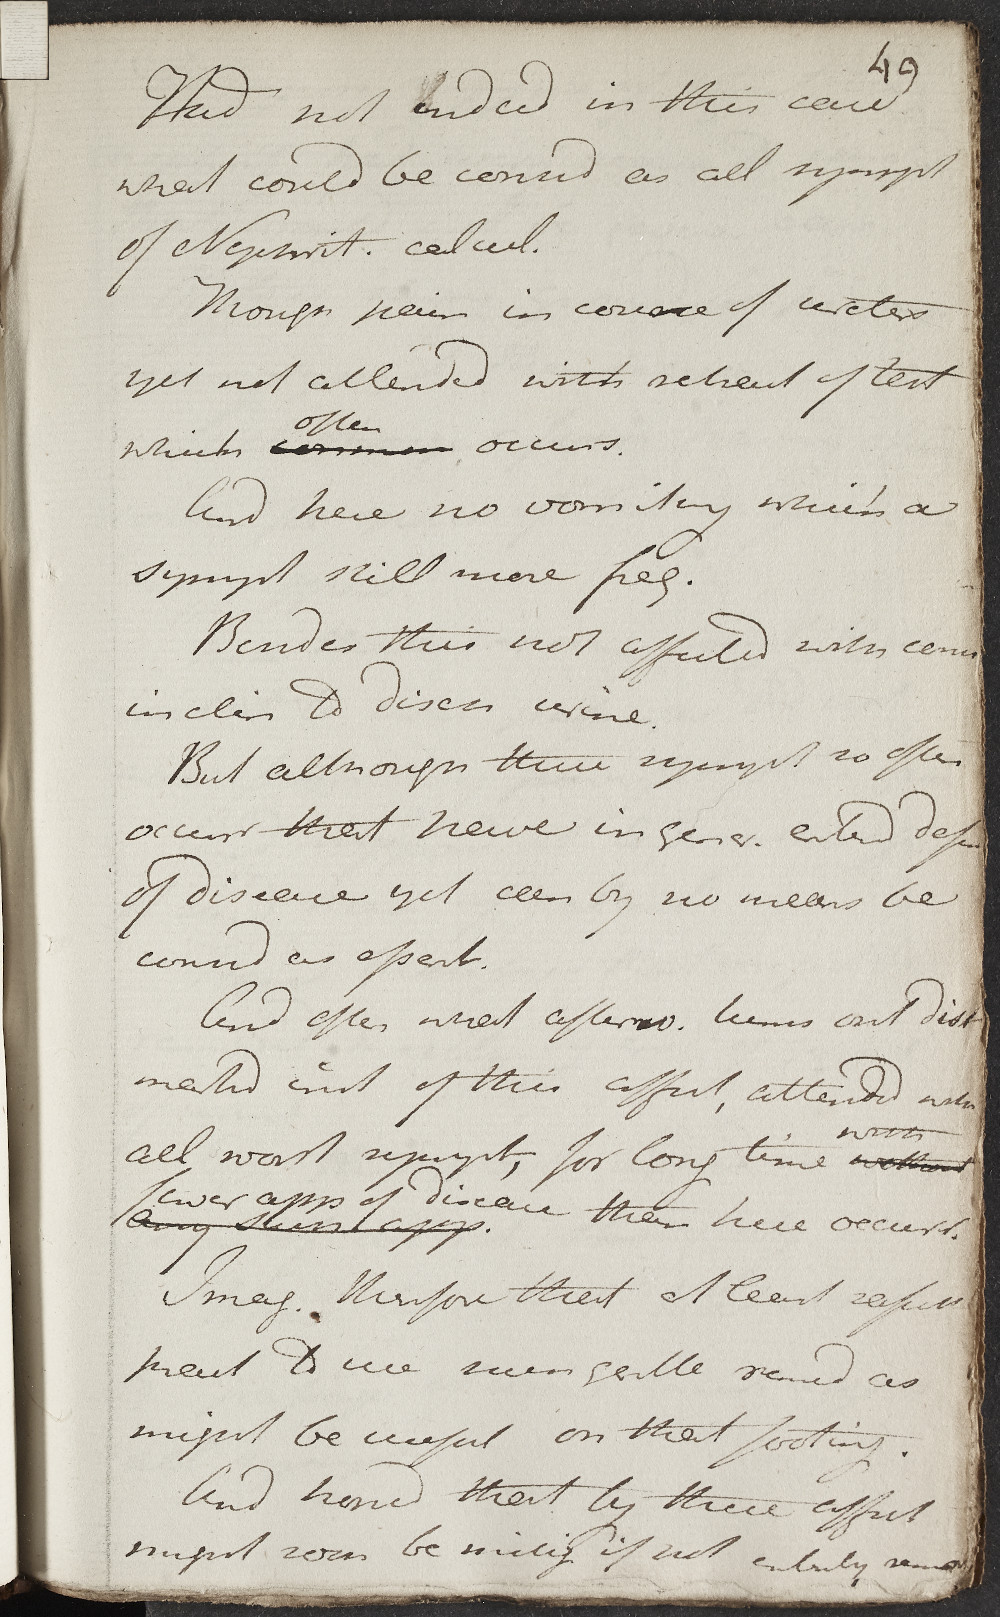 49
Had not indeed in this case
what could be consid as all sympt
of Nephrit. calcul.
Though pain in course of ureters
yet not attended with retract of test
which often common occurs.
And here no vomiting which a
sympt still more freq.
Besides this not affected with
inclin to disch urine.
But although these sympt so often
occur that have in gener. enterd defin
of disease yet can by no means be
consid as essent.
And often what afterw. turns out dist
markd inst of this affect, attended with
all worst sympt, for long time with without
fewer apps of disease than here occurr.
any such app.
Imag. therefore that at least safest
pract to use such gentle remed as
might be useful on that footing.
And hoped that by these affect
might soon be mitig if not entirely remov